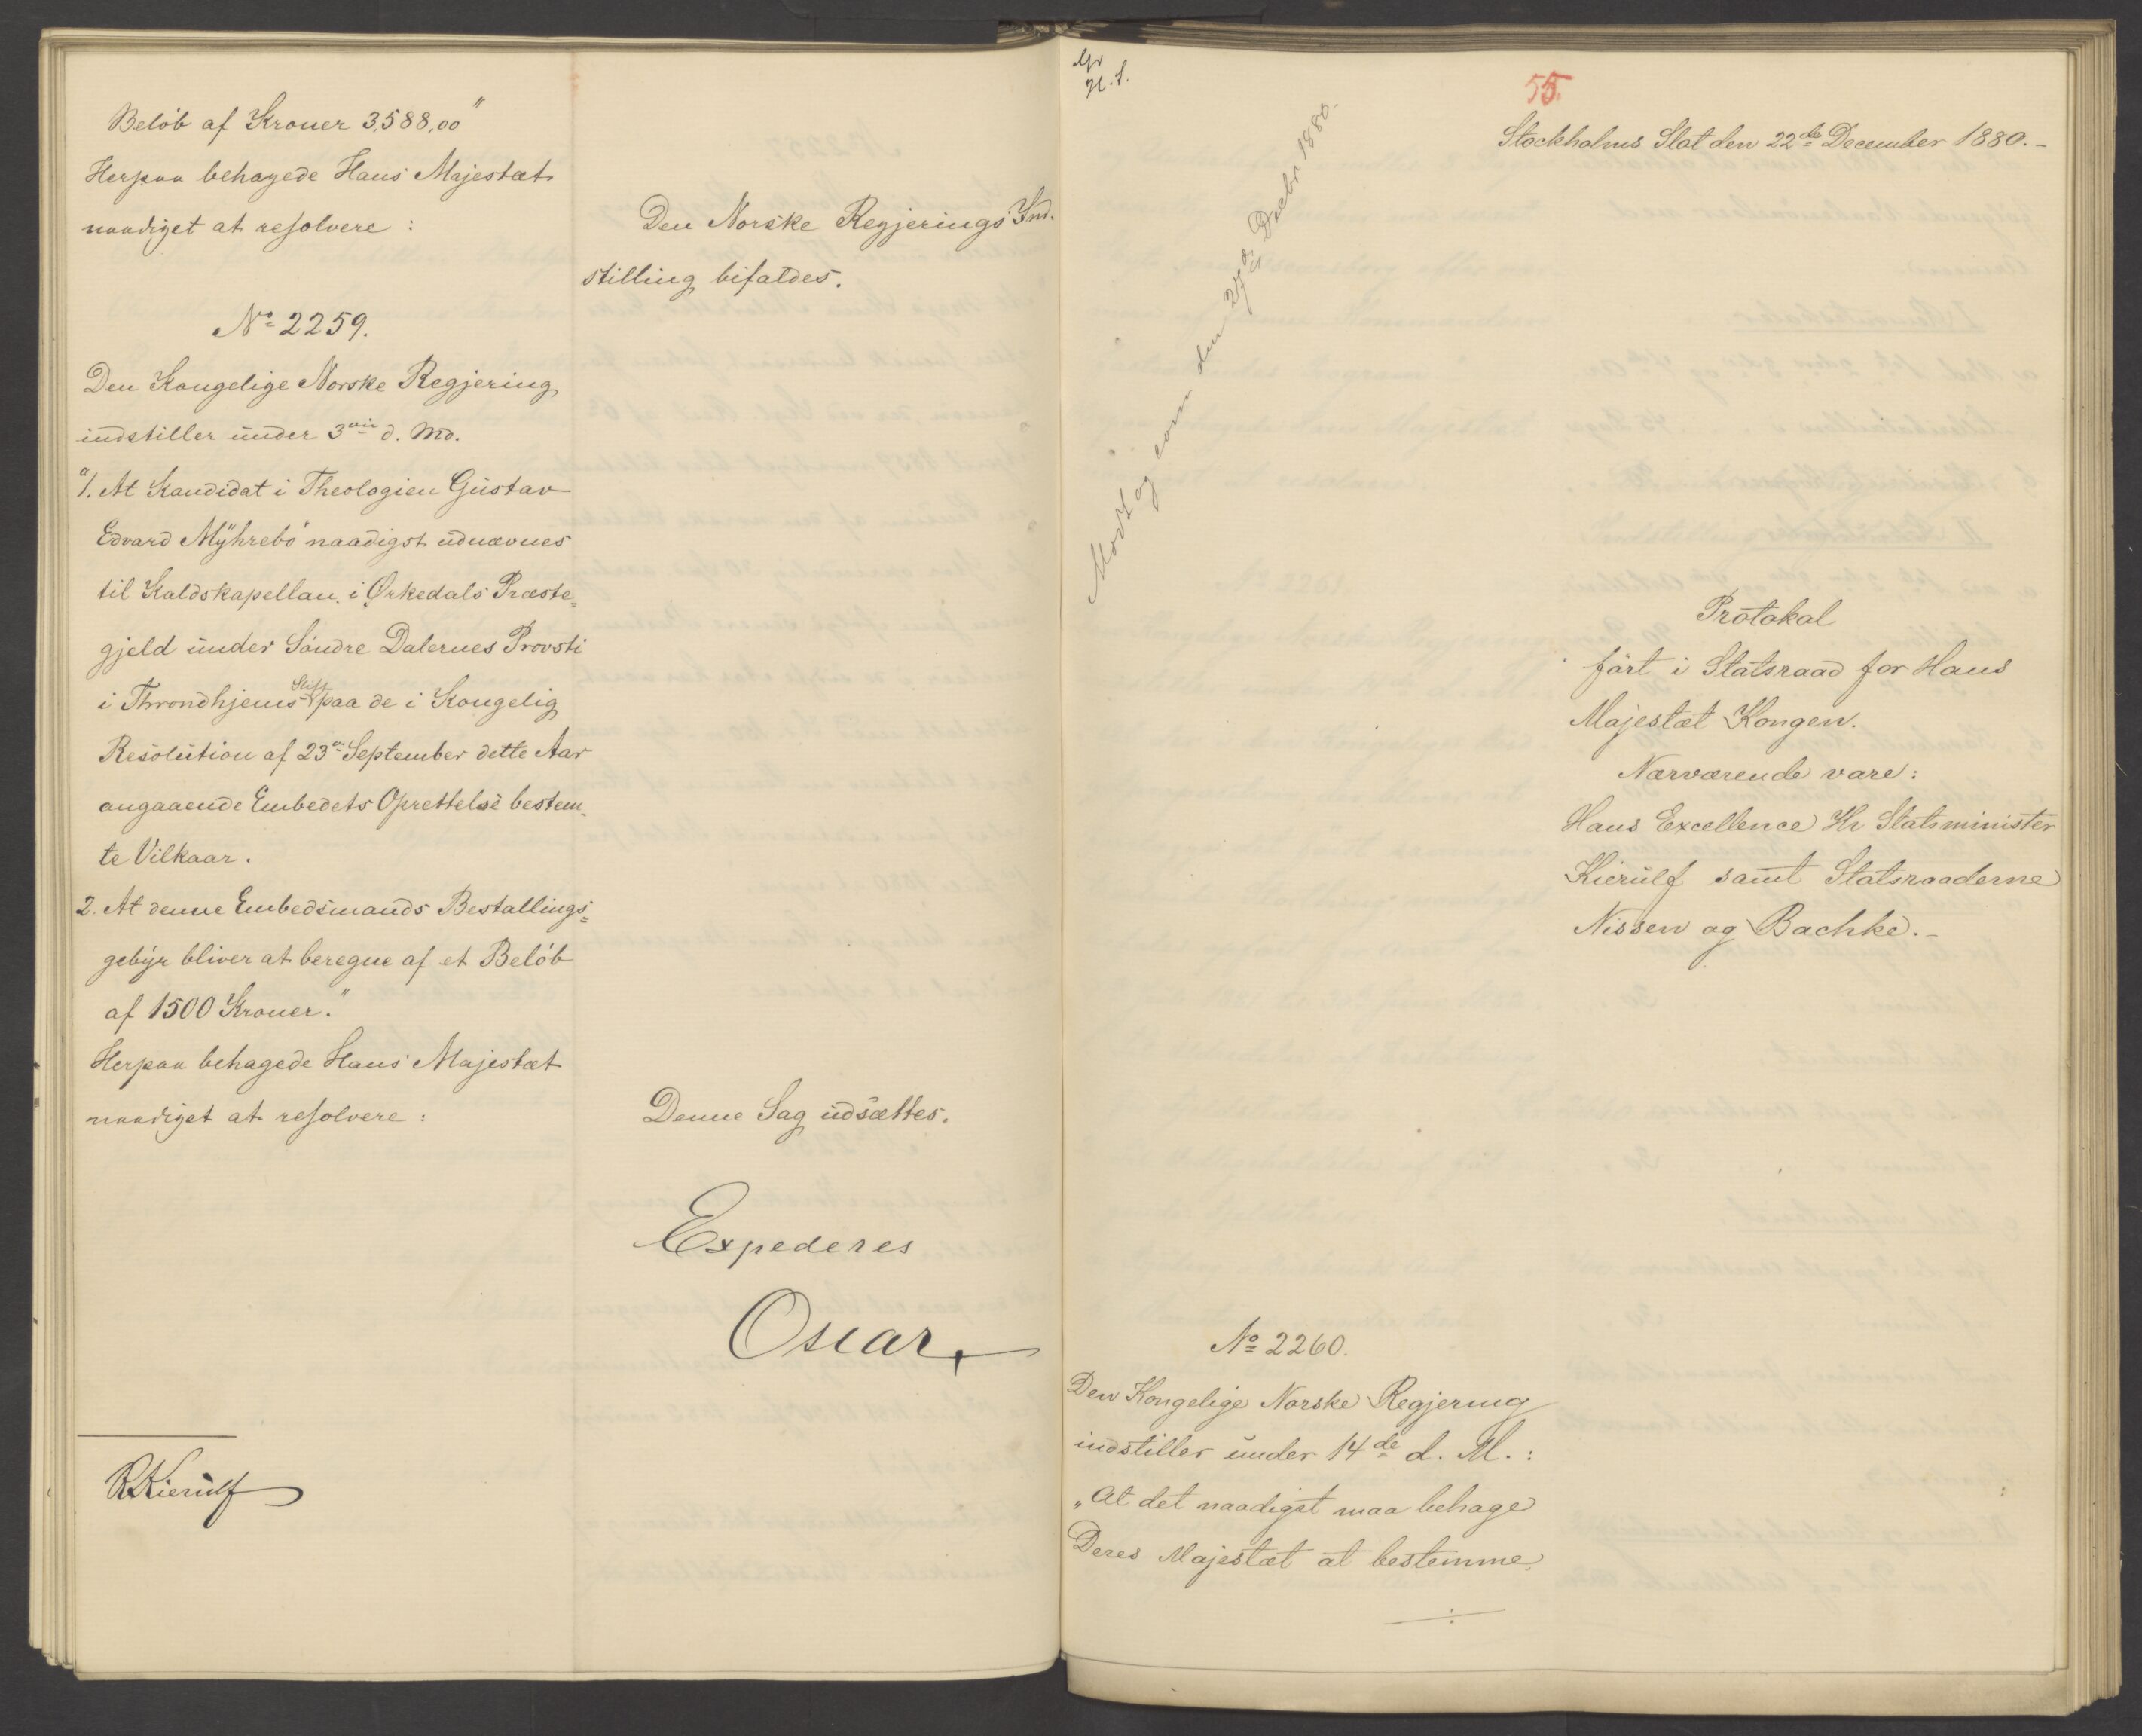 Beløb af Kroner 3,588,00"
Herpaa behagede Hans Majestæt
naadigst at resolvere:
Den Norske Regjerings Ind-
stilling bifaldes.
No 2259.
Den Kongelige Norske Regjering
indstiller under 3die d. Md.
"1. At Kandidat i Theologien Gustav
Edvard Myhrebø naadigst udnævnes
til Kaldskapellan i Ørkedals Præste-
gjeld under Søndre Dalernes Provsti
i Throndhjems Stift paa de i Kongelig
Resolution af 23de September dette Aar
angaaende Embedets Oprettelse bestem-
te Vilkaar.
2. At denne Embedsmands Bestallings-
gebyr bliver at beregne af et Beløb
af 1500 Kroner."
Herpaa behagede Hans Majestæt
naadigst at resolvere:
Denne Sag udsættes.
Expederes
Oscar
RKierulf
H. S.
55.
Stockholms Slot den 22de December 1880.-
Modt og eom den 27de Decbr 1880.
Protokol
ført i Statsraad for Hans
Majestæt Kongen.
Nærværende vare:
Hans Excellence Hr Statsminister
Kierulf samt Statsraaderne
Nissen og Bachke.-
No 2260.
Den Kongelige Norske Regjering
indstiller under 14de d. M.:
"At det naadigst maa behage
Deres Majestæt at bestemme,